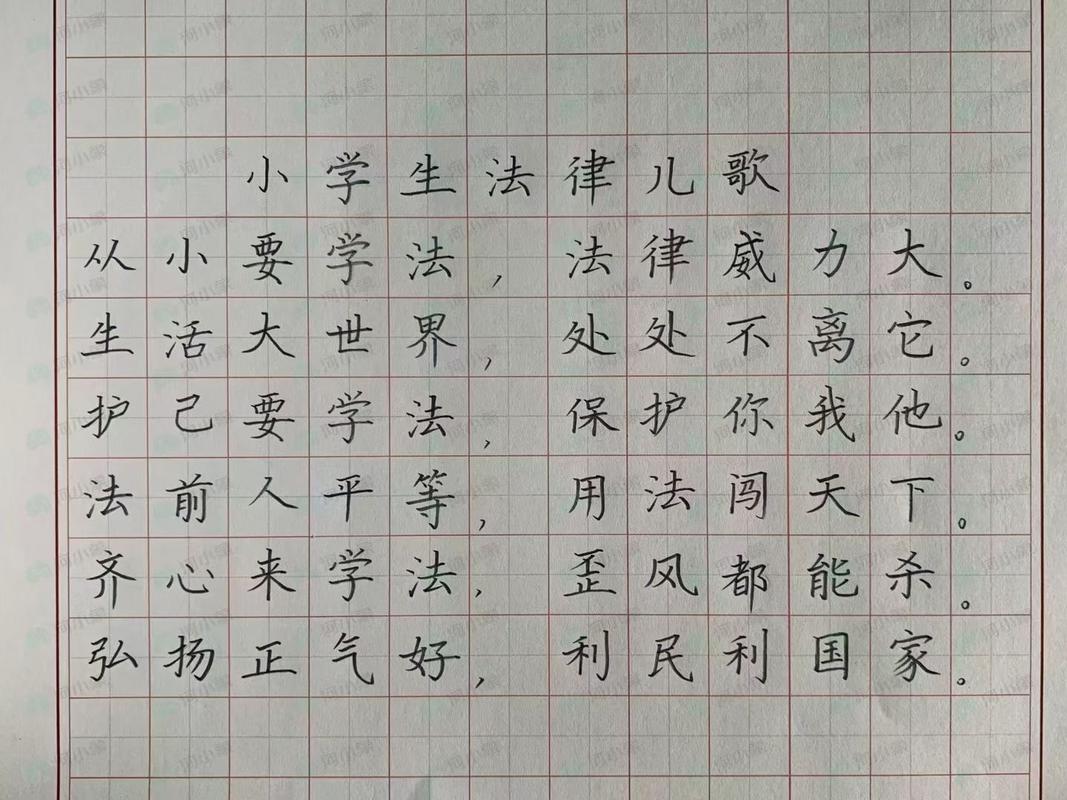 小学生法律儿歌
从小要学法，法律威力大。
生活大世界，处处不离它。
护己要学法，保护你我他。
法前人平等，用法闯天下。
齐心来学法，歪风都能杀。
弘扬正气好，利民利国家。